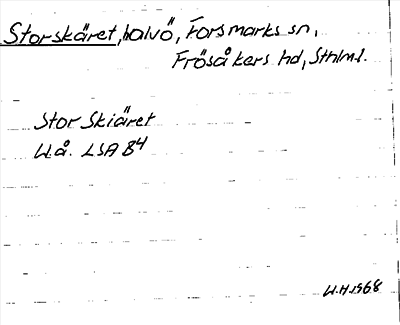 Storskäret, halvö, Forsmarks sn,
Frösåkers hd, Sthlm l.
Stor Skiäret
U.å. LSA B4
U.H. 1968